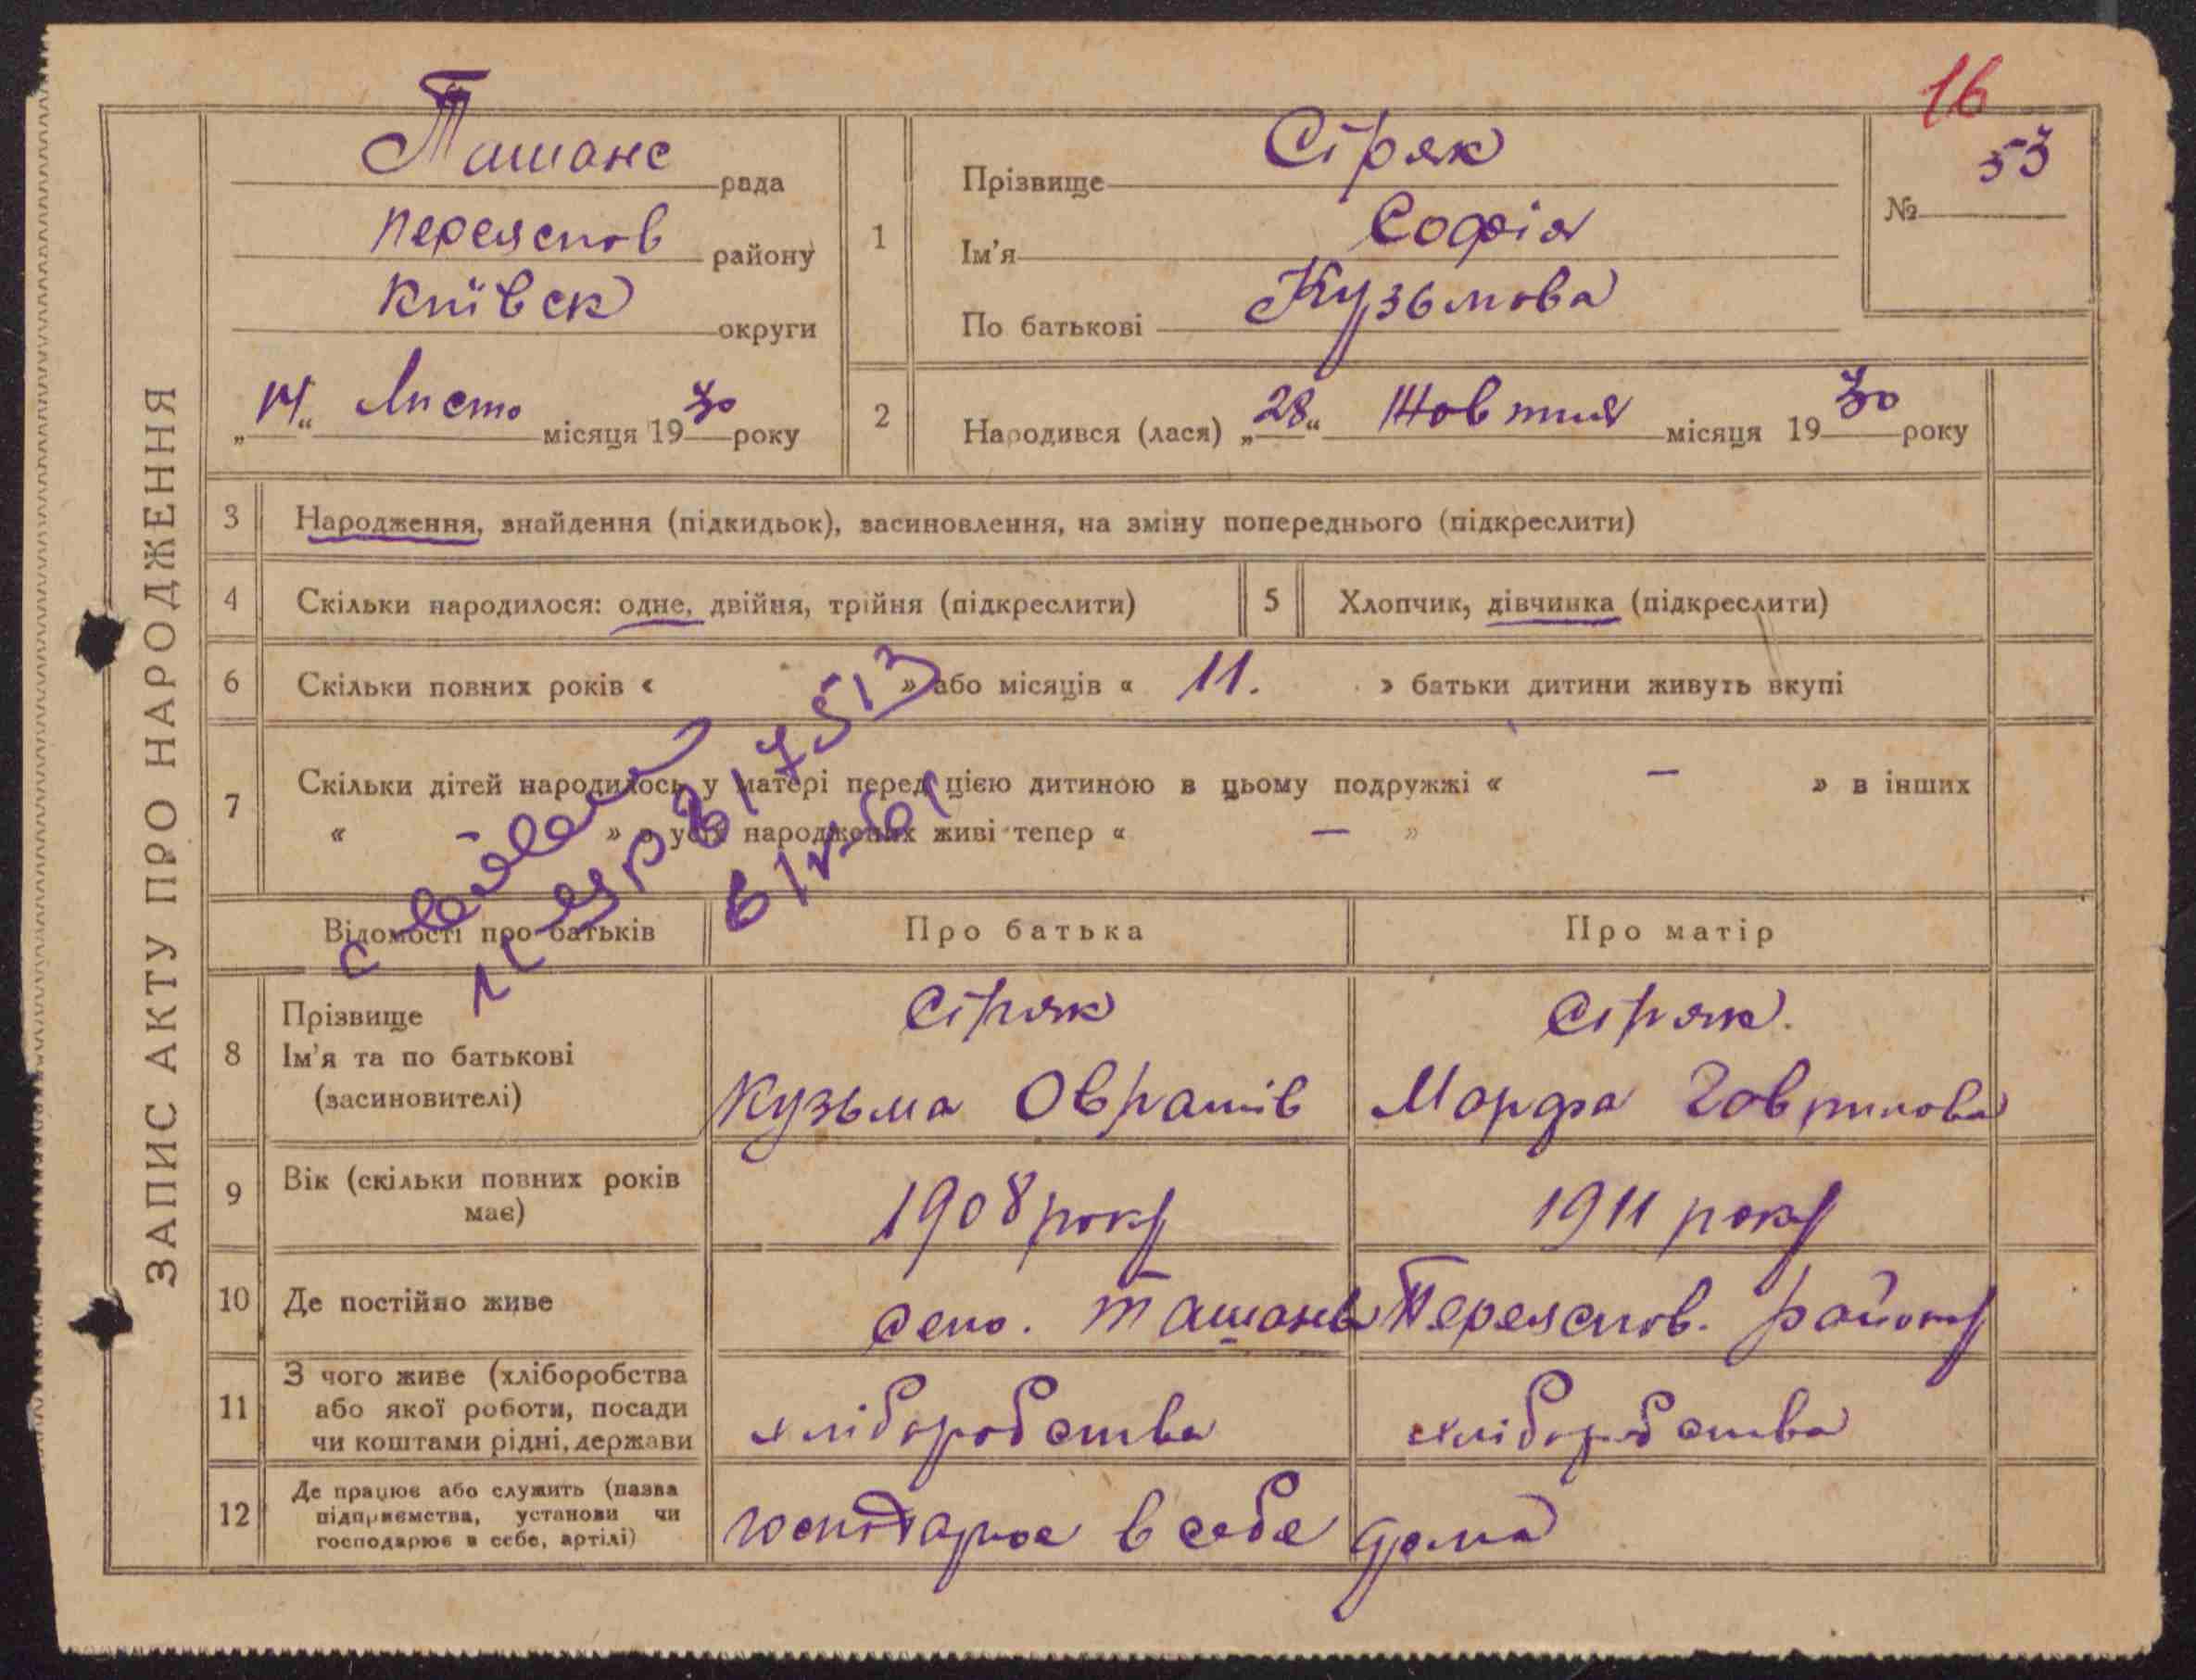 16
ЗАПИС АКТУ ПРО НАРОДЖЕННЯ
Ташанс рада
Переяслов району
Київск округи
„14“ Листо місяця 1930 року
1
Прізвище Сіряк
Ім'я Софія
По батькові Кузьмова
№ 53
2
Народився (лася) „28“ Жовтня місяця 1930 року
3 Народження, знайдення (підкидьок), засиновлення, на зміну попереднього (підкреслити)
4 Скільки народилося: одне, двійня, трійня (підкреслити)
5 Хлопчик, дівчинка (підкреслити)
6 Скільки повних років « » або місяців « 11. » батьки дитини живуть вкупі
7 Скільки дітей народилось у матері перед цією дитиною в цьому подружжі « — » в інших
« — » з усіх народжених живі тепер « — »
Відомості про батьків
Про батька
Про матір
8 Прізвище
Ім'я та по батькові
(засиновителі)
Сіряк
Кузьма Оврамів
Сіряк.
Марфа Говрилова
9 Вік (скільки повних років
має)
1908 року
1911 року
10 Де постійно живе
село. Ташань Переяслов. району
11 З чого живе (хліборобства
або якої роботи, посади
чи коштами рідні, держави
хліборобства
хліборобства
12 Де працює або служить (назва
підприємства, установи чи
господарює в себе, артілі)
господарює в себе дома